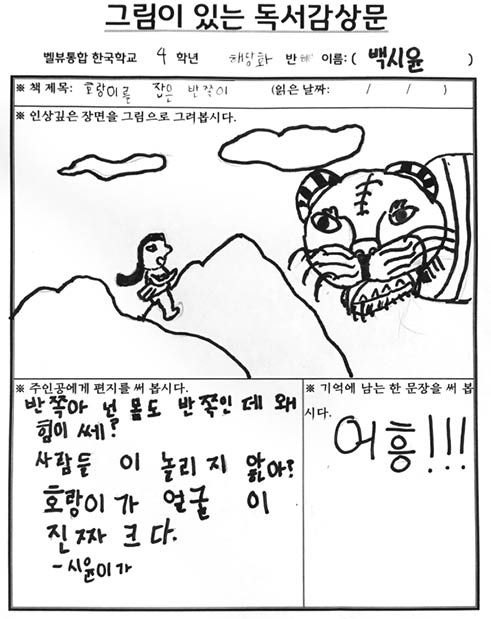 그림이 있는 독서감상문
벨뷰통합 한국학교 4 학년 해당화 반 이름: ( 백시윤 )
※ 책 제목: 호랑이를 잡은 반쪽이 (읽은 날짜: / / )
※ 인상깊은 장면을 그림으로 그려봅시다.
※ 주인공에게 편지를 써 봅시다.
반쪽아 넌 몸도 반쪽인데 왜
힘이 쎄?
사람들이 놀리지 않아?
호랑이가 얼굴이
진짜 크다.
-시윤이가
※ 기억에 남는 한 문장을 써 봅
시다.
어흥!!!